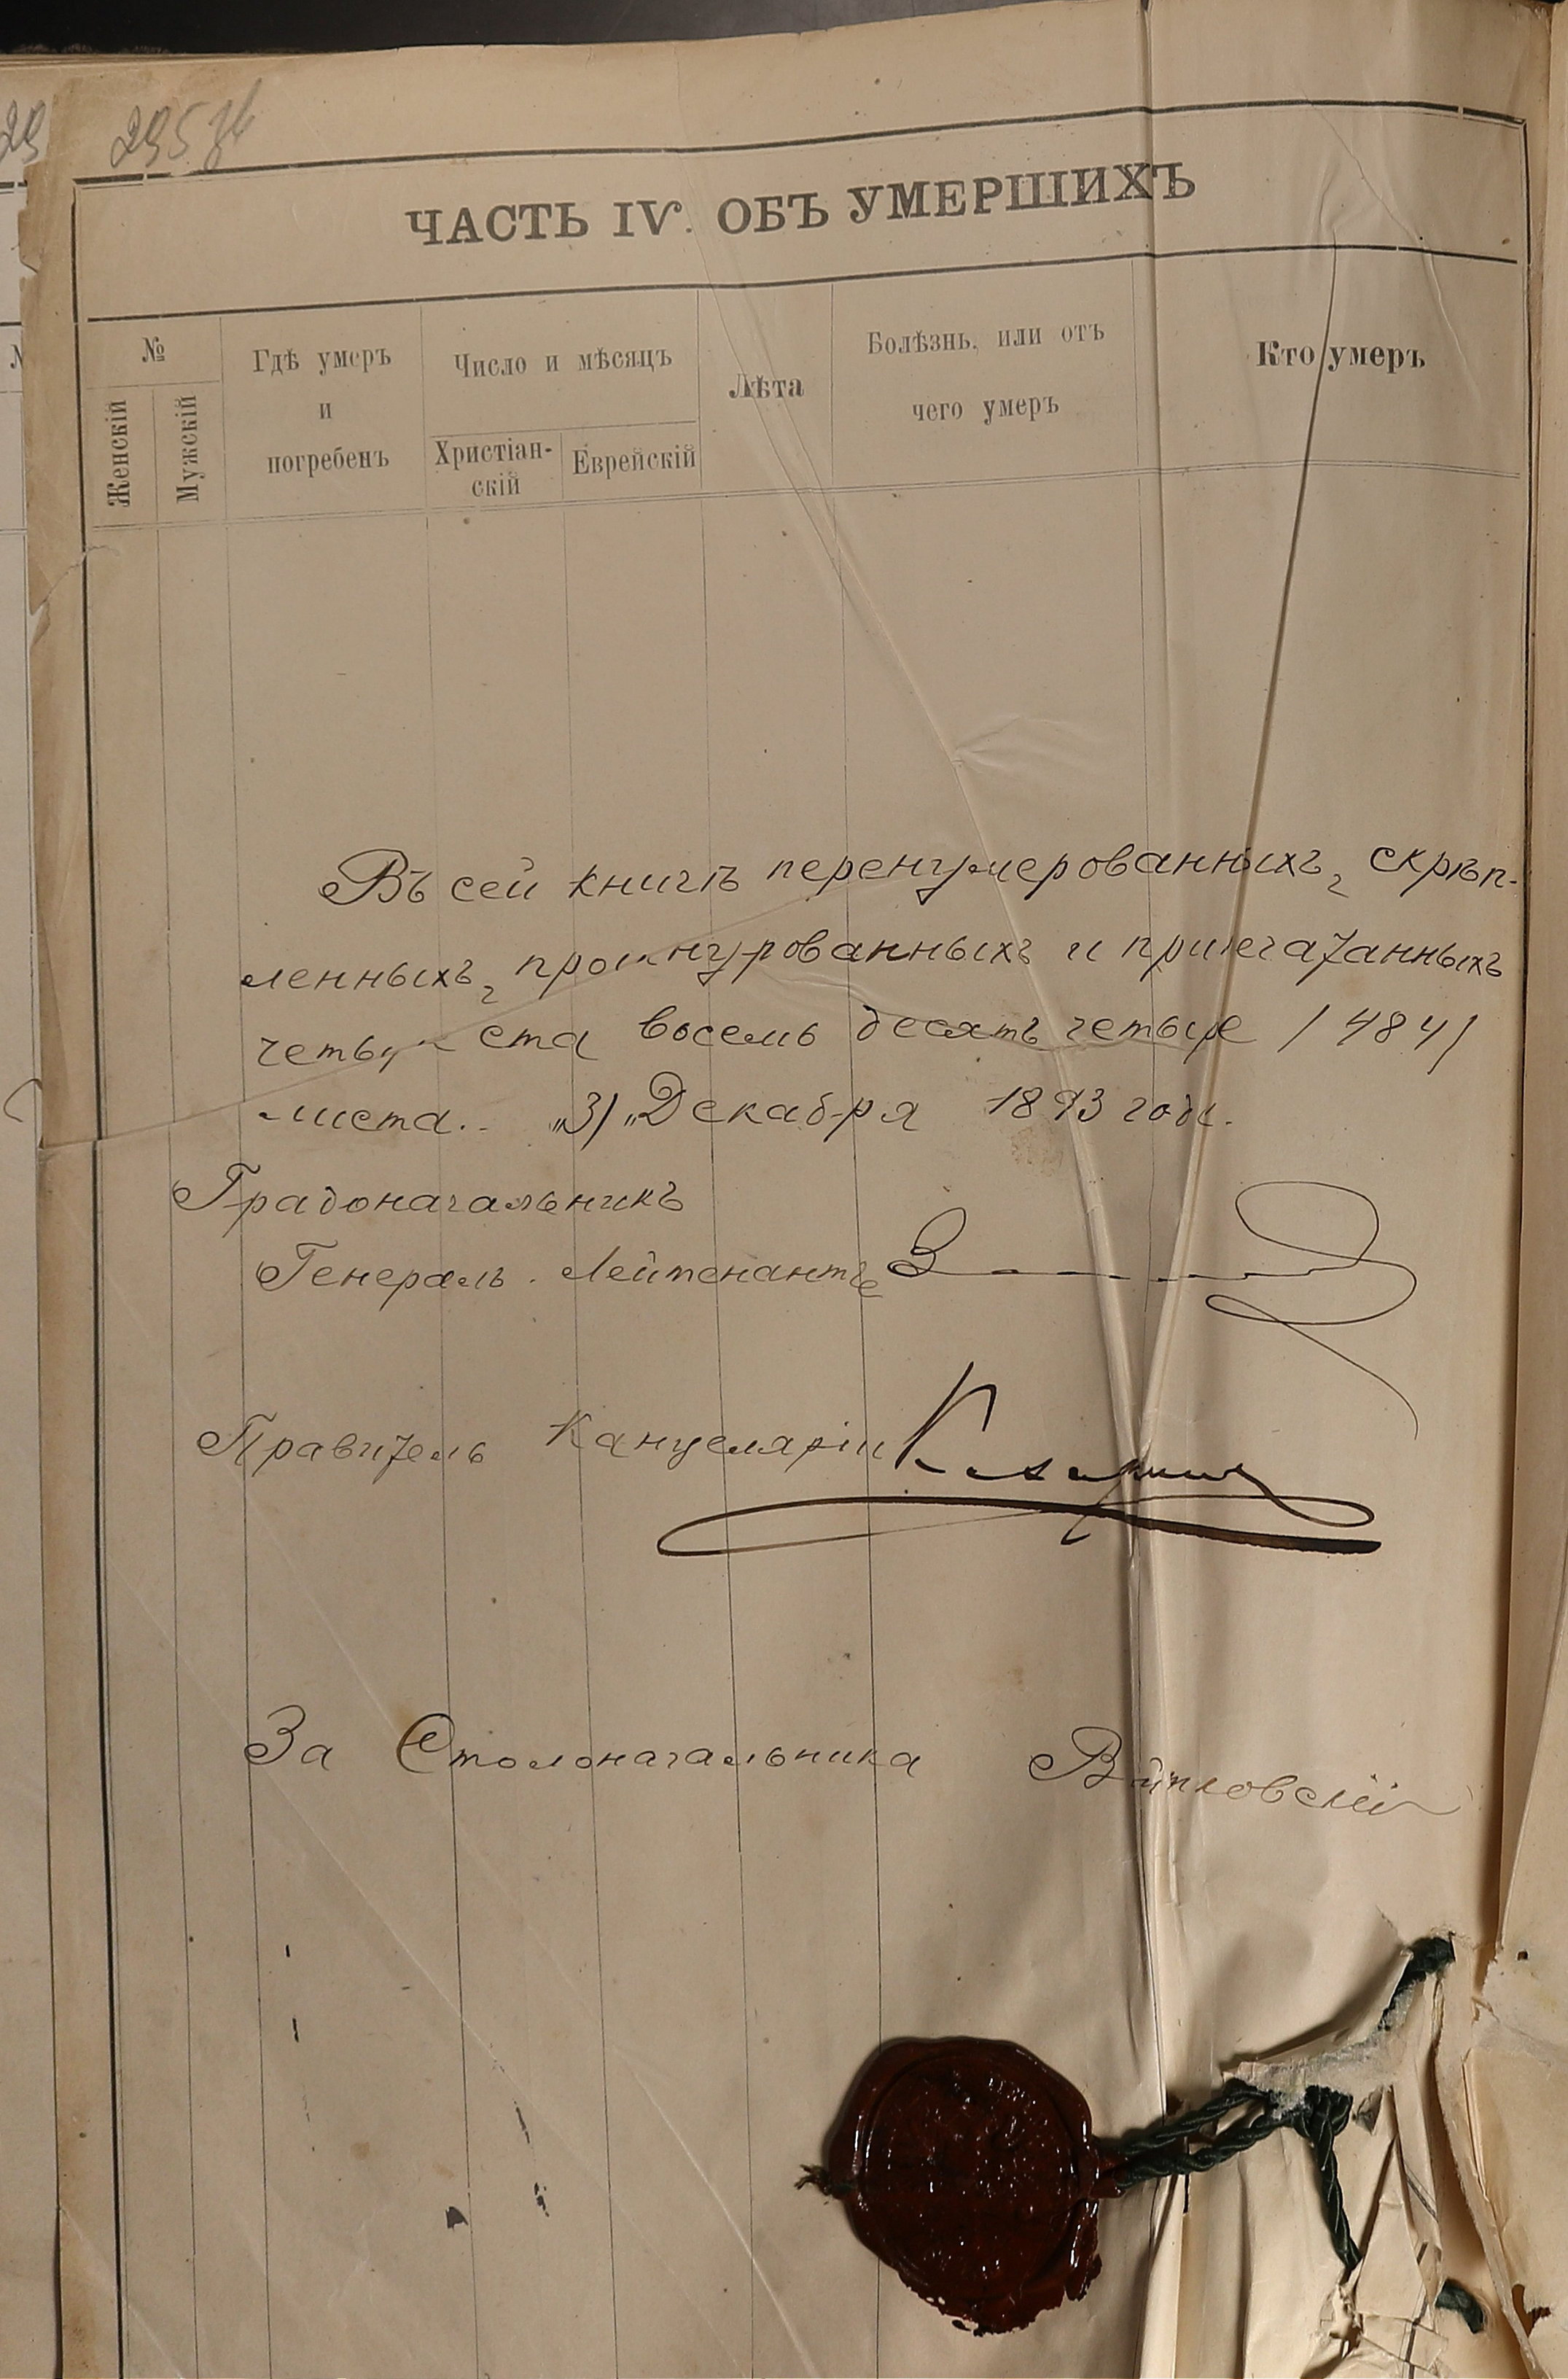 295 об
ЧАСТЬ IV. ОБЪ УМЕРШИХЪ
№
Женскій
Мужскій
Гдѣ умеръ
и
погребенъ
Число и мѣсяцъ
Христіан-
скій
Еврейскій
Лѣта
Болѣзнь, или отъ
чего умеръ
Кто умеръ
Въ сей книгѣ перенумерованныхъ, скрѣп-
ленныхъ, прошнурованныхъ и припечатанныхъ
четыреста восемь десятъ четыре /484/
листа.. „31„ Декабря 1893 года.
Градоначальникъ
Генералъ-Лейтенантъ
Правитель Канцеляріи
За Столоначальника